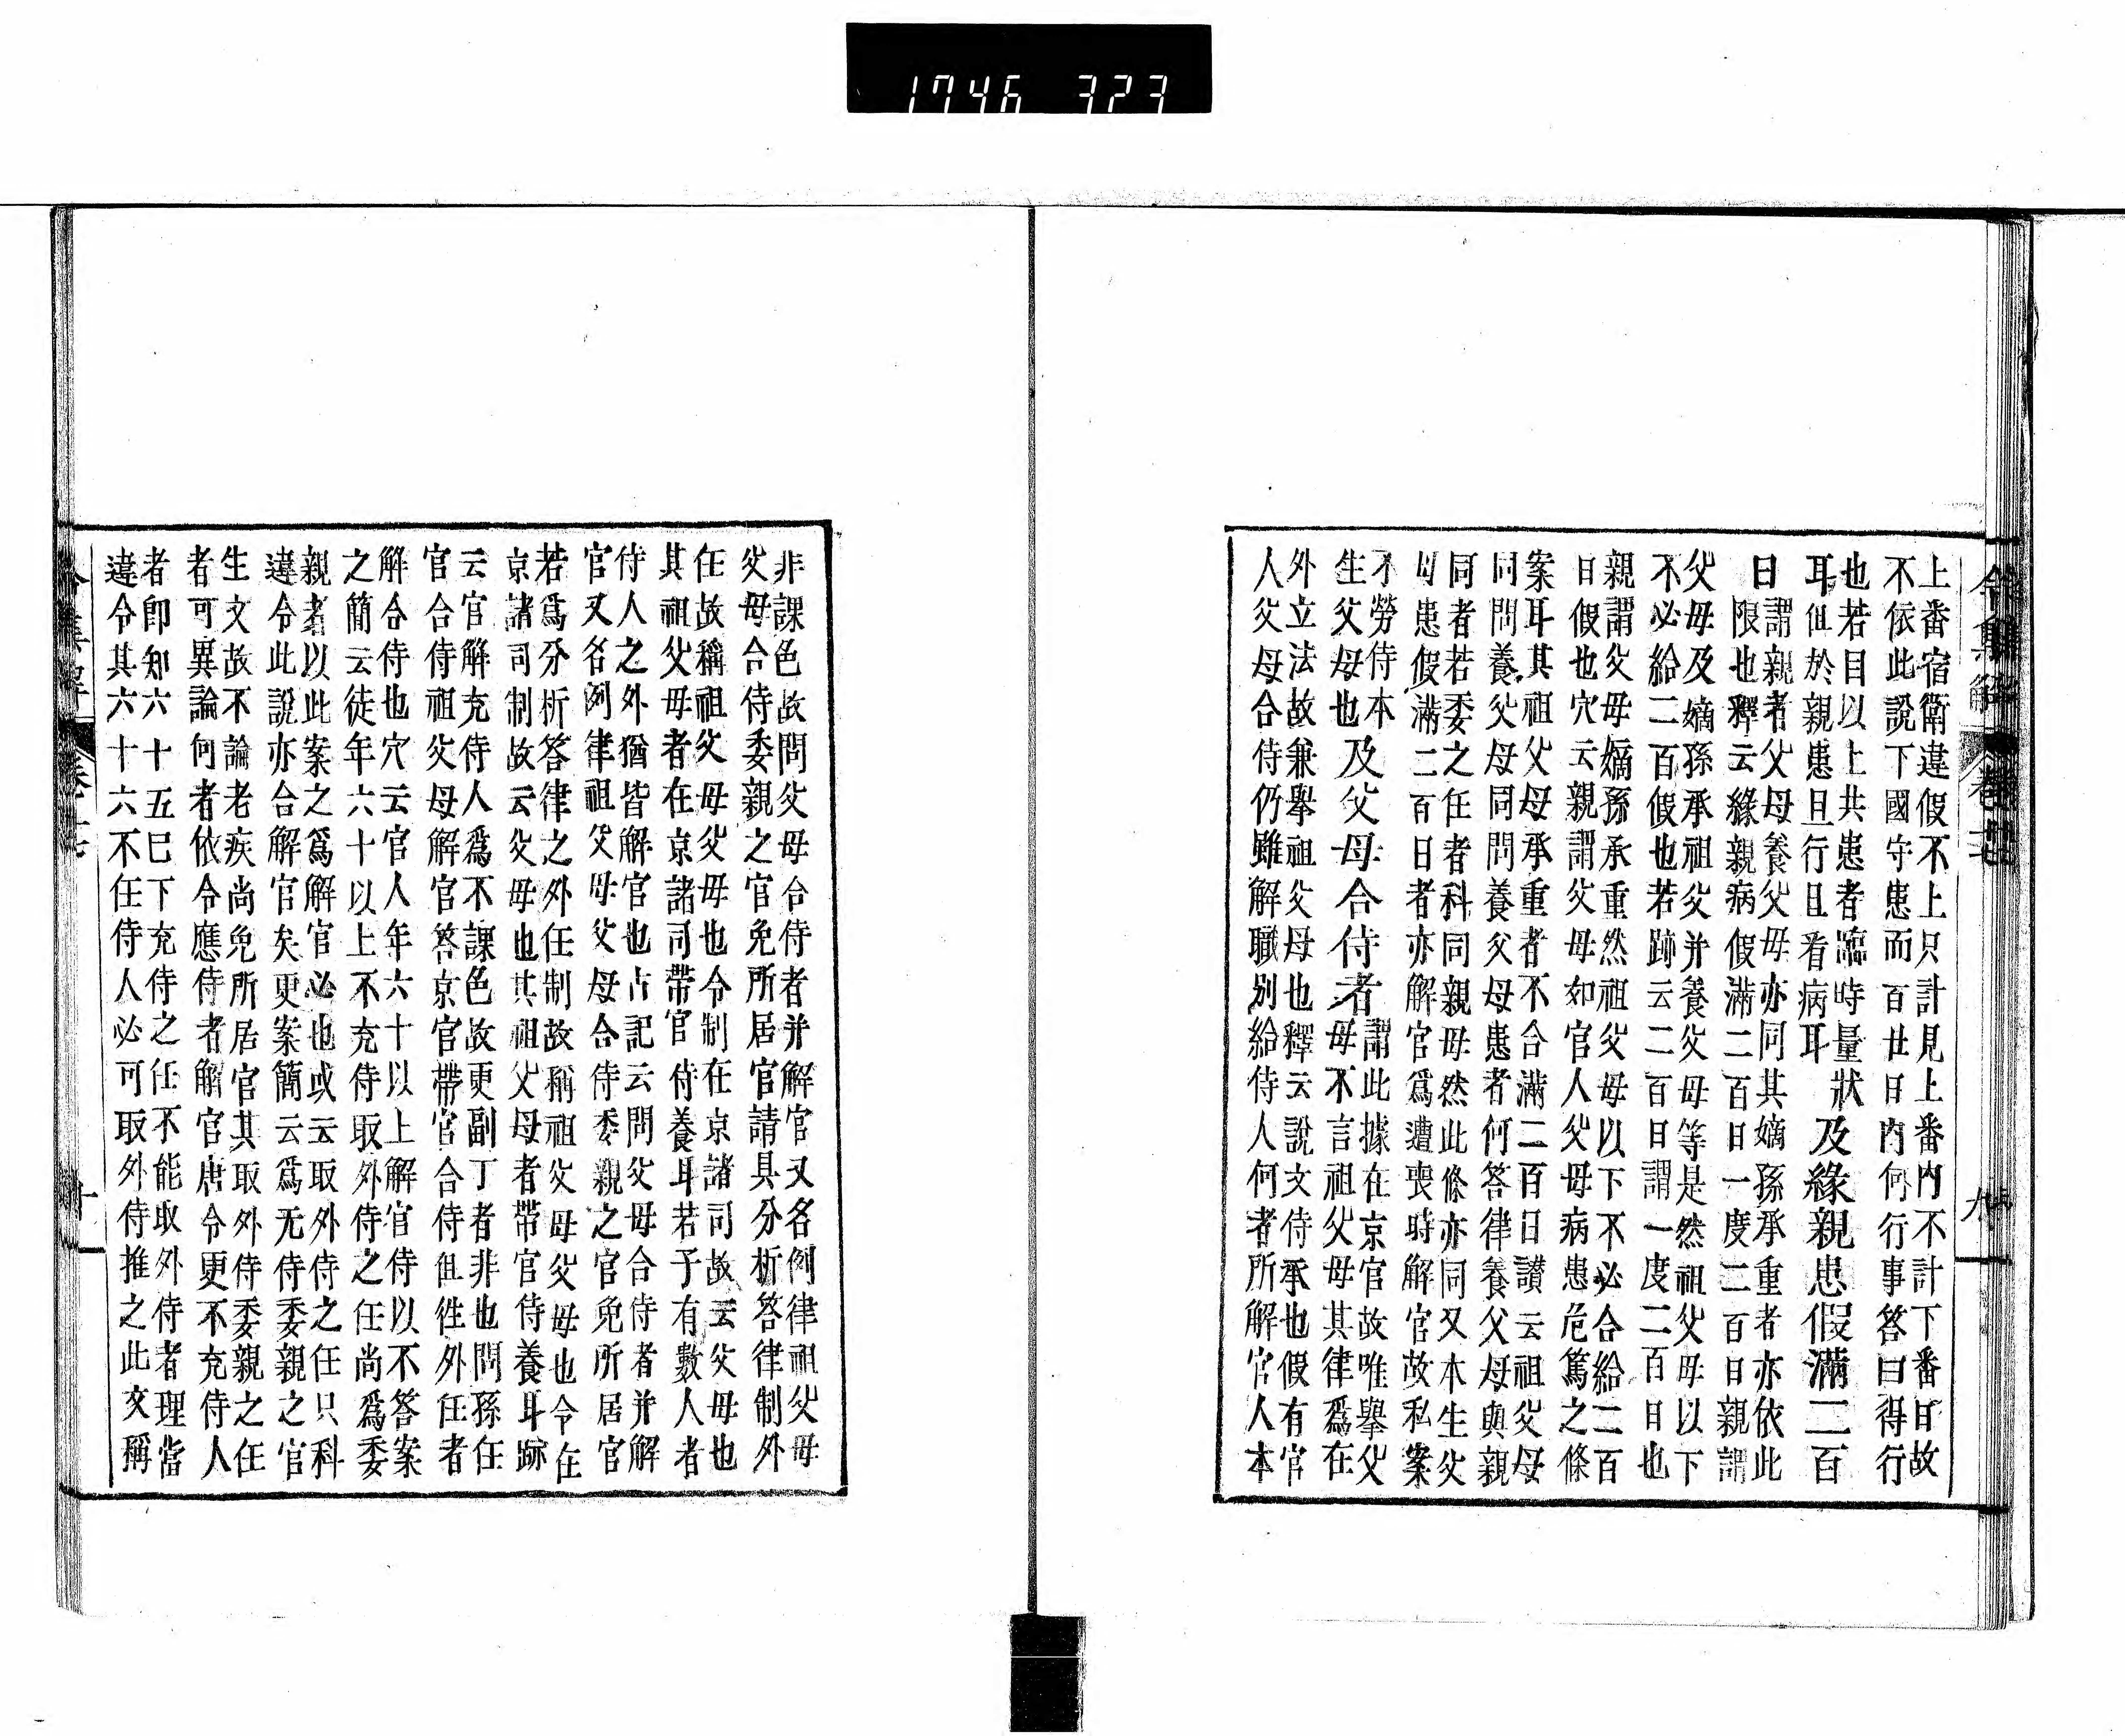 1746 323
上番宿衛違假不上只計見上番内不計下番日故
不依此說下國守患而百廿日内何行事答曰得行
也若目以上共患者臨時量狀
耳但於親患且行且看病耳
及緣親患假滿二百
日
謂親者父母養父母亦同其嫡孫承重者亦依此
限也釋云緣親病假滿二百日一度二百日親謂
父母及嫡孫承祖父并養父母等是然祖父母以下
不必給二百假也若跡云二百日謂一度二百日也
親謂父母嫡孫承重然祖父母以下不必合給二百
日假也穴云親謂父母如官人父母病患危篤之條
案耳其祖父母承重者不合滿二百日讃云祖父母
同問養父母同問養父母患者何答律養父母與親
同者若委之任者科同親母然此條亦同又本生父
母患假滿二百日者亦解官爲遭喪時解官故私案
不勞侍本
生父母也
及父母合侍者
謂此據在京官故唯擧父
母不言祖父母其律爲在
外立法故兼擧祖父母也釋云說文侍承也假有官
人父母合侍仍雖解職別給侍人何者所解官人本
令集解 卷廿 九
非課色故問父母合侍者并解官又名例律祖父母
父母合侍委親之官免所居官請具分析答律制外
任故稱祖父母父母也令制在京諸司故云父母也
其祖父母者在京諸司帶官侍養耳若子有數人者
侍人之外猶皆解官也占記云問父母合侍者并解
官又名例律祖父母父母合侍委親之官免所居官
若爲分析答律之外任制故稱祖父母父母也令在
京諸司制故云父母也其祖父母者帶官侍養耳跡
云官解充侍人爲不課色故更副丁者非也問孫任
官合侍祖父母解官答京官帶官合侍但往外任者
解合侍也穴云官人年六十以上解官侍以不答案
之簡云徒年六十以上不充侍取外侍之任尚爲委
親者以此案之爲解官必也或云取外侍之任只科
違令此說亦合解官矣更案簡云爲无侍委親之官
生文故不論老疾尚免所居官其取外侍委親之任
者可異論何者依令應侍者解官唐令更不充侍人
者卽知六十五已下充侍之任不能取外侍者理當
違令其六十六不任侍人必可取外侍推之此文稱
令集解 十